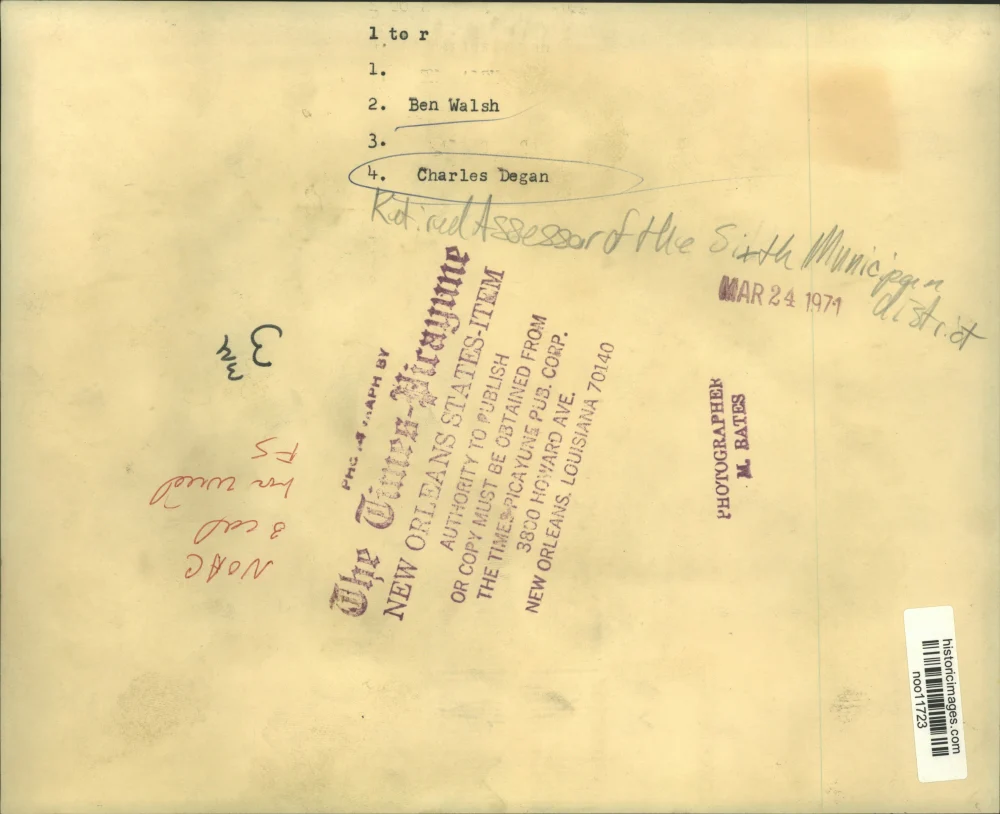 l to r
1.
2. Ben Walsh
3.
4. Charles Degan
Retired Assessor of the Sixth Municipan
district
MAR 24 1971
PHOTOGRAPH BY
The Times-Picayune
NEW ORLEANS STATES-ITEM
AUTHORITY TO PUBLISH
OR COPY MUST BE OBTAINED FROM
THE TIMES-PICAYUNE PUB. CORP.
3800 HOWARD AVE.
NEW ORLEANS, LOUISIANA 70140
PHOTOGRAPHER
M. BATES
NOAC
3 col
FS
historicimages.com
noo11723